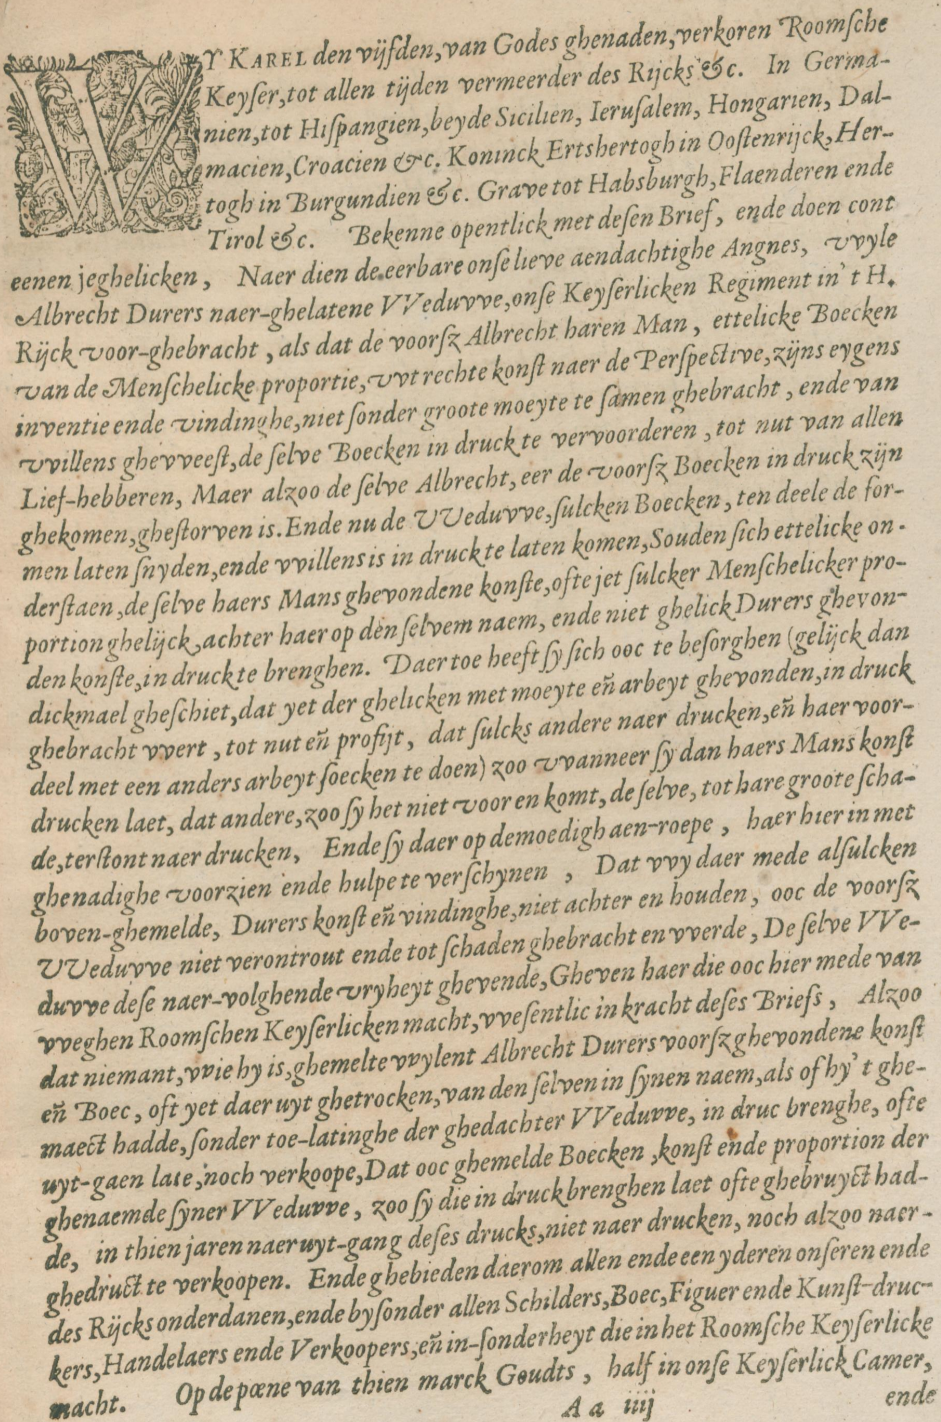 WY KAREL den vijfden, van Godes ghenaden, verkoren Roomſche
Keyſer, tot allen tijden vermeerder des Rijcks &c. In Germa-
nien, tot Hiſpangien, beyde Sicilien, Ieruſalem, Hongarien, Dal-
macien, Croacien &c. Koninck Ertshertogh in Ooſtenrijck, Her-
togh in Burgundien &c. Grave tot Habsburgh, Flaenderen ende
Tirol &c. Bekenne opentlick met deſen Brief, ende doen cont
eenen jeghelicken, Naer dien de eerbare onſe lieve aendachtighe Angnes, vvyle
Albrecht Durers naer-ghelatene VVeduvve, onſe Keyſerlicken Regiment in't H.
Rijck voor-ghebracht, als dat de voorſz Albrecht haren Man, ettelicke Boecken
van de Menſchelicke proportie, vvt rechte konſt naer de Perſpective, zijns eygens
inventie ende vindinghe, niet ſonder groote moeyte te ſamen ghebracht, ende van
vvillens ghevveeſt, de ſelve Boecken in druck te vervoorderen, tot nut van allen
Lief-hebberen, Maer alzoo de ſelve Albrecht, eer de voorſz Boecken in druck zijn
ghekomen, gheſtorven is. Ende nu de VVeduvve, ſulcken Boecken, ten deele de for-
men laten ſnyden, ende vvillens is in druck te laten komen, Souden ſich ettelicke on-
derſtaen, de ſelve haers Mans ghevondene konſte, ofte jet ſulcker Menſchelicker pro-
portion ghelijck, achter haer op den ſelvem naem, ende niet ghelick Durers ghevon-
den konſte, in druck te brenghen. Daer toe heeft ſy ſich ooc te beſorghen (gelijck dan
dickmael gheſchiet, dat yet der ghelicken met moeyte eñ arbeyt ghevonden, in druck
ghebracht vvert, tot nut eñ profijt, dat ſulcks andere naer drucken, eñ haer voor-
deel met een anders arbeyt ſoecken te doen) zoo vvanneer ſy dan haers Mans konſt
drucken laet, dat andere, zoo ſy het niet voor en komt, de ſelve, tot hare groote ſcha-
de, terſtont naer drucken, Ende ſy daer op demoedigh aen-roepe, haer hier in met
ghenadighe voorzien ende hulpe te verſchynen, Dat vvy daer mede alſulcken
boven-ghemelde, Durers konſt eñ vindinghe, niet achter en houden, ooc de voorſz
VVeduvve niet verontrout ende tot ſchaden ghebracht en vverde, De ſelve VVe-
duvve deſe naer-volghende vryheyt ghevende, Gheven haer die ooc hier mede van
vveghen Roomſchen Keyſerlicken macht, vveſentlic in kracht deſes Briefs, Alzoo
dat niemant, vvie hy is, ghemelte vvylent Albrecht Durers voorſz ghevondene konſt
eñ Boec, oft yet daer uyt ghetrocken, van den ſelven in ſynen naem, als of hy't ghe-
maect hadde, ſonder toe-latinghe der ghedachter VVeduvve, in druc brenghe, ofte
uyt-gaen late, noch verkoope, Dat ooc ghemelde Boecken, konſt ende proportion der
ghenaemde ſyner VVeduvve, zoo ſy die in druck brenghen laet ofte ghebruyct had-
de, in thien jaren naer uyt-gang deſes drucks, niet naer drucken, noch alzoo naer-
ghedruct te verkoopen. Ende ghebieden daerom allen ende een yderen onſeren ende
des Rijcks onderdanen, ende byſonder allen Schilders, Boec, Figuer ende Kunſt-druc-
kers, Handelaers ende Verkoopers, eñ in-ſonderheyt die in het Roomſche Keyſerlicke
macht. Op de pœne van thien marck Goudts, half in onſe Keyſerlick Camer,
A a iiij ende